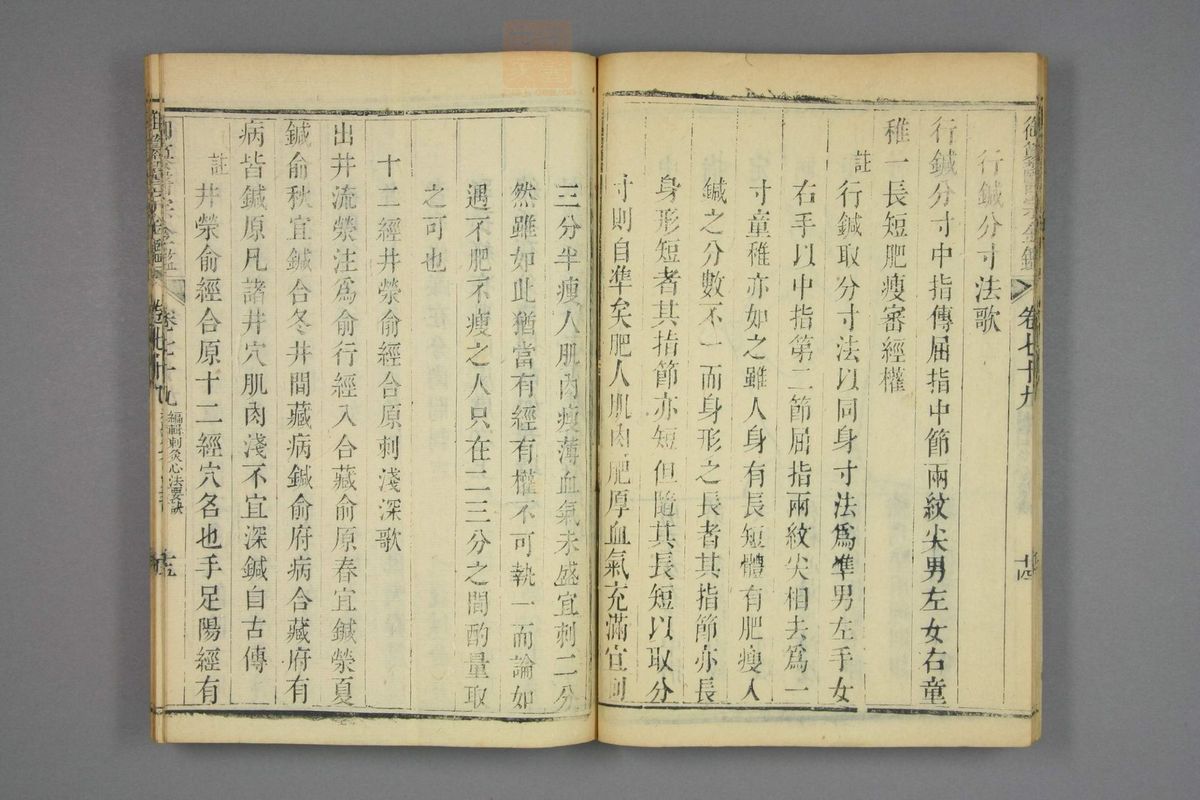 行鍼分寸法歌
行鍼分寸中指傳屈指中節兩紋尖男左女右童
稚一長短肥瘦審經權
註行鍼取分寸法以同身寸法爲準男左手女
右手以中指第二節屈指兩紋尖相去爲一
寸童稚亦如之雖人身有長短體有肥瘦人
鍼之分數不一而身形之長者其指節亦長
身形短者其指節亦短但隨其長短以取分
寸則自準矣肥人肌肉肥厚血氣充滿宜刺
三分半瘦人肌肉瘦薄血氣未盛宜刺二分
然雖如此猶當有經有權不可執一而論如
遇不肥不瘦之人只在二三分之間酌量取
之可也
十二經井滎俞經合原刺淺深歌
出井流滎注爲俞行經入合藏俞原春宜鍼滎夏
鍼俞秋宜鍼合冬井間藏病鍼俞府病合藏府有
病皆鍼原凡諸井穴肌肉淺不宜深鍼自古傳
註井滎俞經合原十二經穴名也手足陽經有
卷七十九
編輯刺灸心法要訣